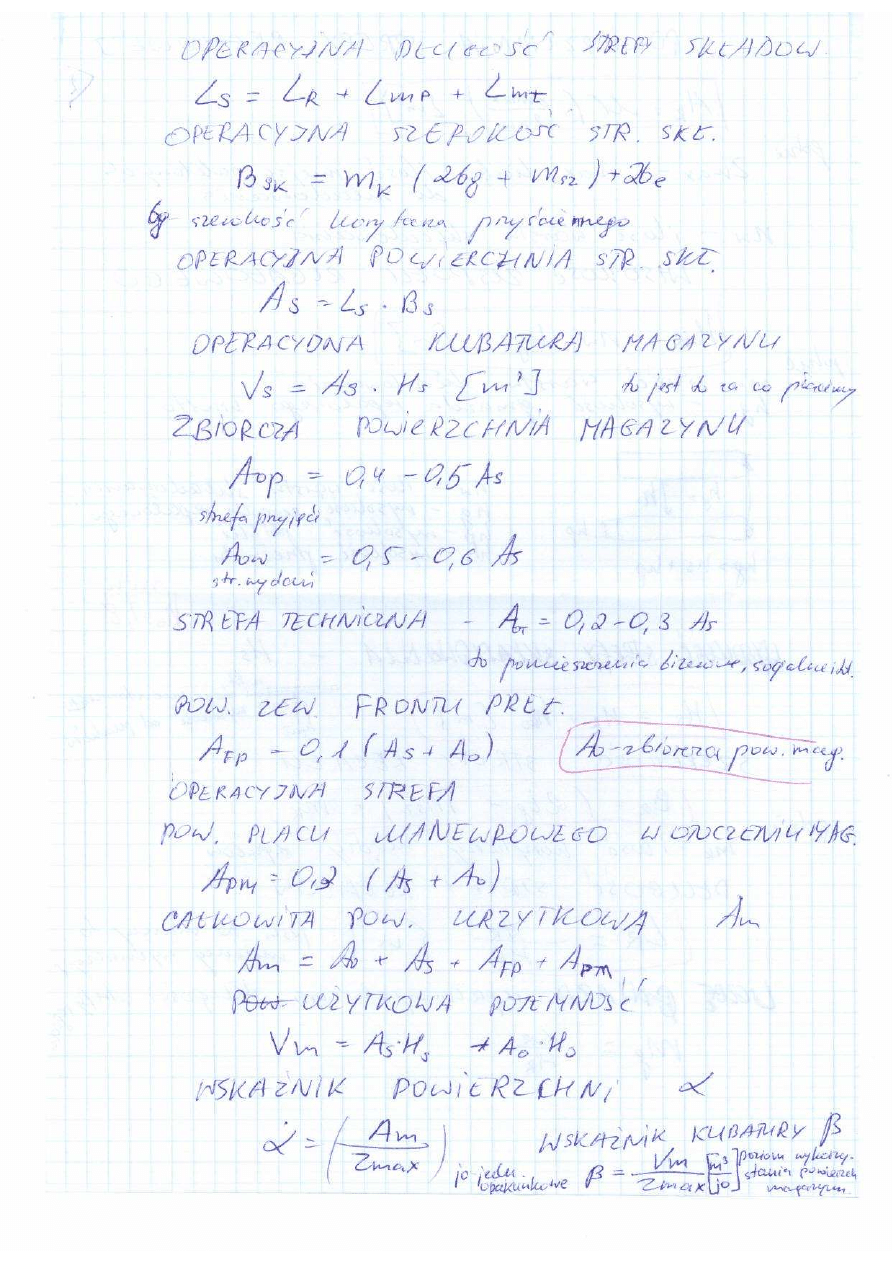 OPERACYJNA DŁUGOŚĆ STREFY SKŁADOW.
Ls = LR + LmP + Lmt
OPERACYJNA SZEROKOŚĆ STR. SKŁ.
BSK = mK (2bg + msz) + 2be
bg szerokość korytarza przyściennego
OPERACYJNA POWIERCHNIA STR. SKŁ.
As = Ls · Bs
OPERACYJNA KUBATURA MAGAZYNU
Vs = As · Hs [m³] to jest to za co płacimy
ZBIORCZA POWIERZCHNIA MAGAZYNU
Aop = 0,4 - 0,5 As
strefa przyjęć
Aow = 0,5 - 0,6 As
str. wydań
STREFA TECHNICZNA - = 0,2 - 0,3 As
to pomieszczenia biurowe, socjalne itd.
POW. ZEW. FRONTU PREŁ.
AFP - 0,1 (As + Ao) Ao - zbiorcza pow. mag.
OPERACYJNA STREFA
POW. PLACU MANEWROWEGO W OTOCZENIU MAG.
Apm = (As + Ao)
CAŁKOWITA POW. URZYTKOWA Am
Am = Ao + As + AFP + APM
POW UŻYTKOWA POJEMNOŚĆ
Vm = As·Hs + Ao·Ho
WSKAŹNIK POWIERZCHNI α
α = (Am / Zmax) WSKAŹNIK KUBATURY β
jo-jedn. opakunkowe β = Vm / Zmax [m³/jo] poziom wykorzy-
stania powierzch
magazynu